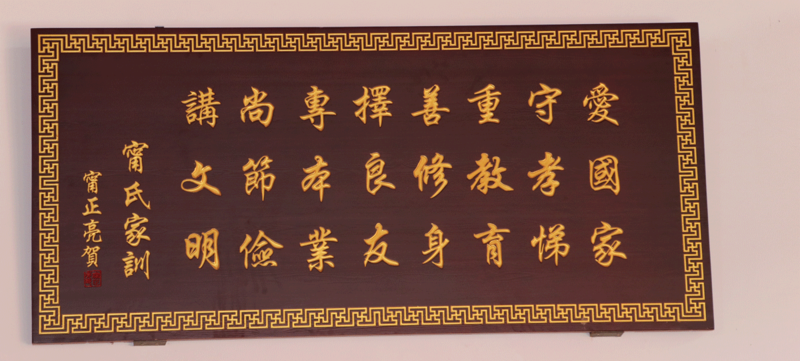 愛國家
守孝悌
重教育
善修身
擇良友
專本業
尚節儉
講文明
甯氏家訓
甯正亮賀